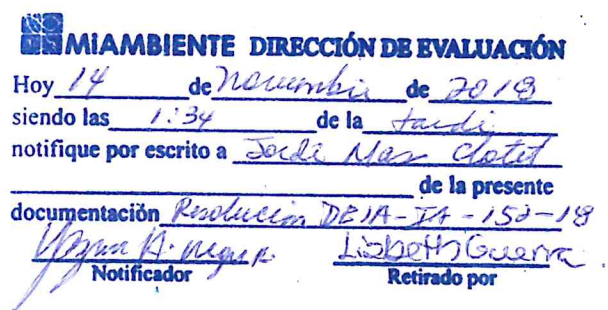 MIAMBIENTE DIRECCIÓN DE EVALUACIÓN
Hoy 14 de noviembre de 2018
siendo las 1:34 de la tarde
notifique por escrito a Jordi Mas Clotet
de la presente
documentación Resolución DEIA-IA-152-18
Lisbeth Guerra
Notificador Retirado por